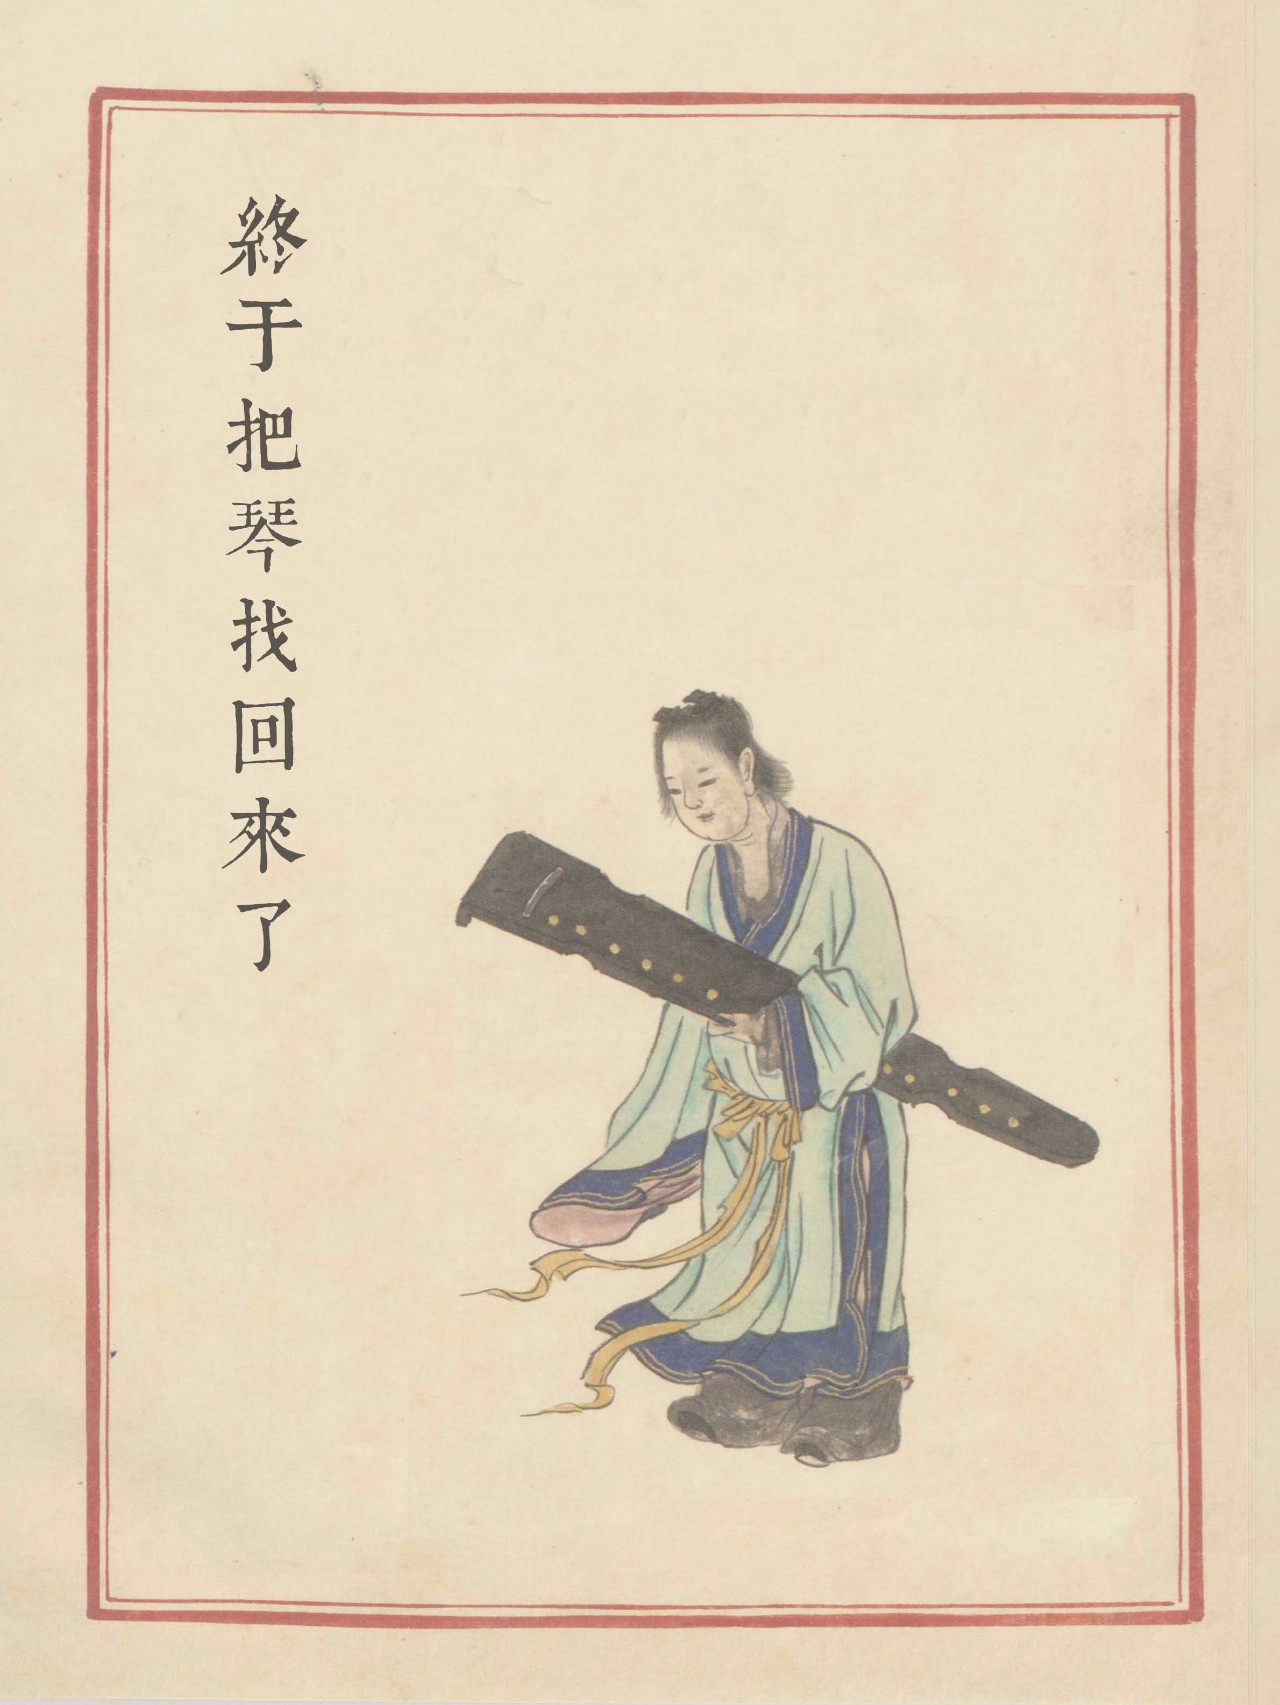 終于把琴找回來了